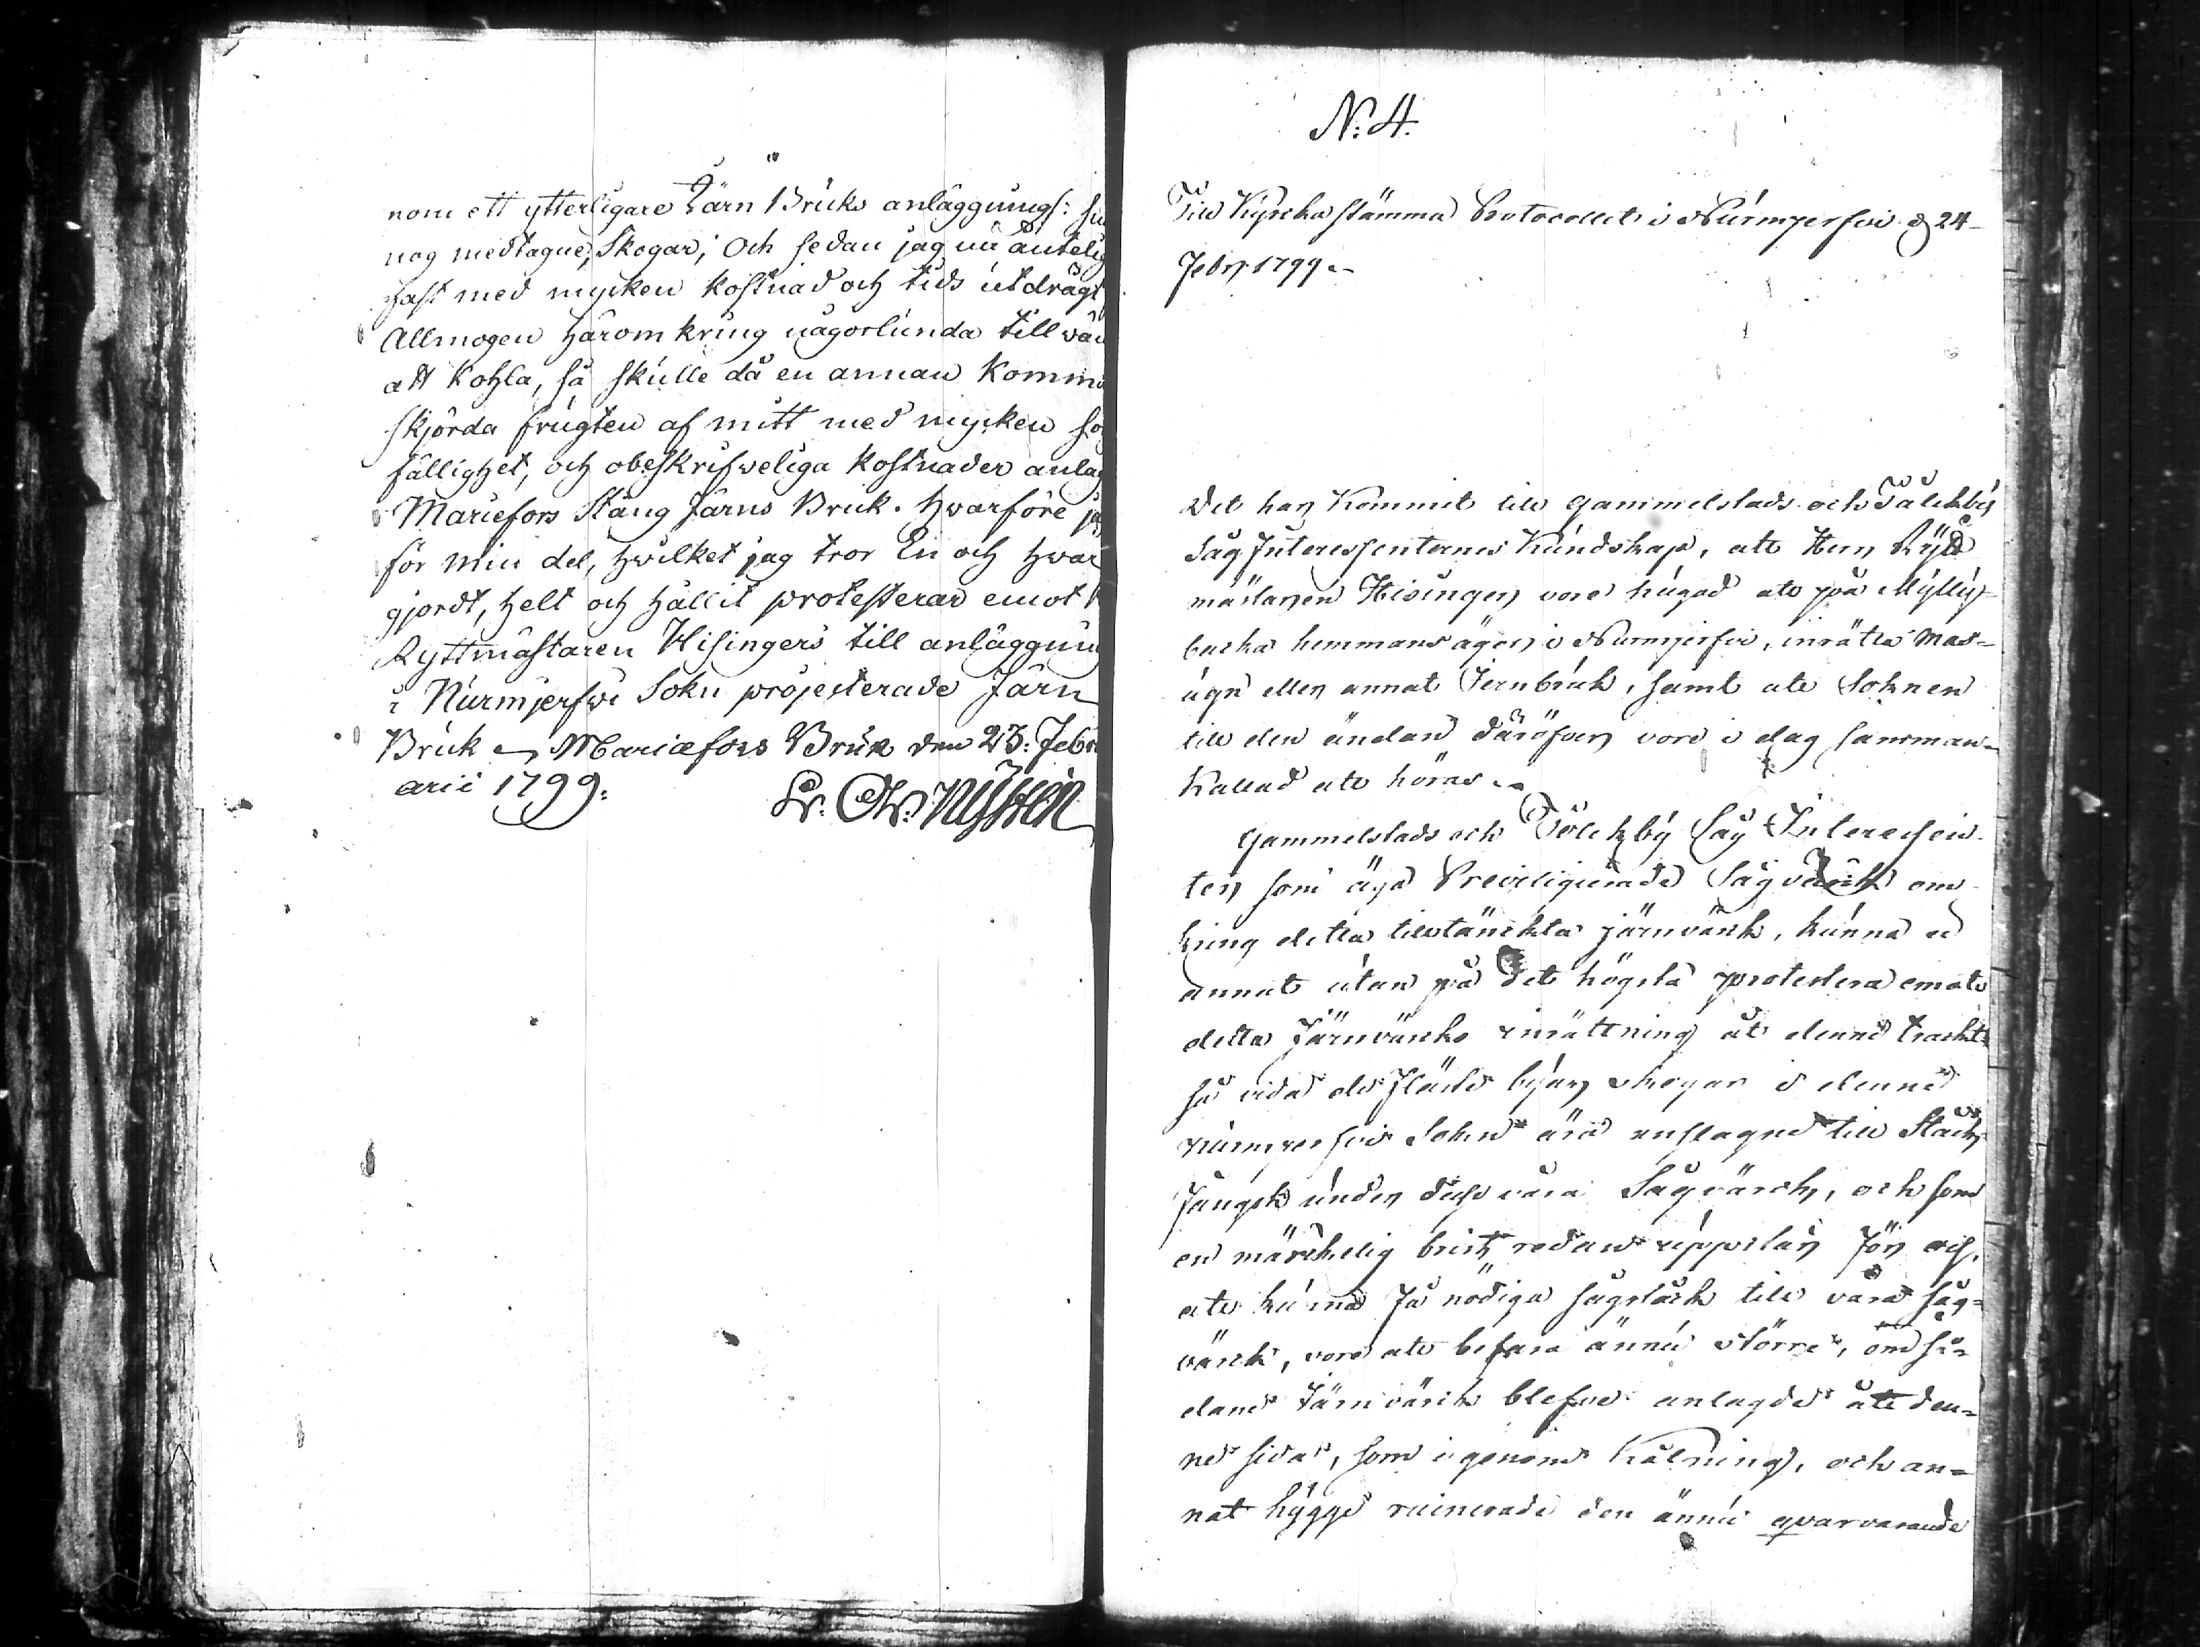 nom ett ytterligare Järn Bruks anläggning:
nog medtagne, Skogar; Och sedan jag nu äntelig
fast med mycken kostnad och tids utdrägt
Allmogen häromkring någorlunda till
att kohla, så skulle då en annan komm
skjörda frugten af mitt med mycken
fällighet, och obeskrifweliga kostnader anlag
Mariefors Stång Järns Bruk. Hwarföre
för min del, hwilket jag tror En och hwar
gjordt, helt och hållit protesterar emot
Ryttmästaren Hisingers till anläggning
i Nurmjerfwi Sokn projecterade Järn
Bruk Mariæfors Bruk den 23: Febru
arii 1799:
Nystén
N: 4.
Till Kyrcko stämma Protocollet i Nurmjerfvi d 24
Febr 1799
Det har kommit till Gammelstads och Tålckby
Såg Interessenternes kundskap, att Herr Rytt
mästaren Hisinger vore hugad att på Mylly-
backa hemmans ägor i Nurmjerfvi, inrätta Mas-
ugn eller annat Jernbruk, samt att Soknen
till den ändan däröfver vore i dag samman-
kallad att höras
Gammelstads och Tölckby Såg Interessen-
ter som äga Previligierade Sågvärck om-
kring detta tilltänckta järnvärk, kunna ei
annat utan på det högsta protestera emot
detta Järnvärcks inrättning åt denne trackt
så vida de fläste byars skogar i denne
Nurmjerfvi Sokn äro anslagne till Stock
fångst under desse våra Sågvärck, och som
en märckelig brist redan uppstår för oss,
att kunna få nödiga sågstock till våra såg-
värck, vore att befara ännu större, om så-
dane Järnvärck blefve anlagde åt den-
ne sida, som igenom kålning, och an-
nat hygge ruinerade den ännu qvarvarande